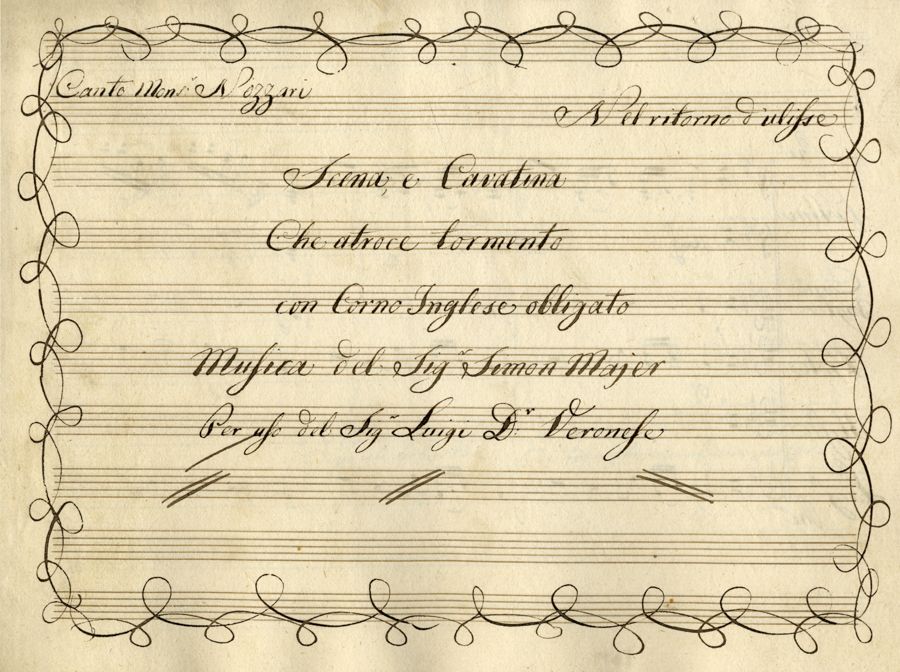 Canto Mons.r Nozzari
Nel ritorno d'ulisse
Scena, e Cavatina
Che atroce tormento
con Corno Inglese obbligato
Musica del Sig.r Simon Majer
Per uso del Sig.r Luigi D.r Veronese